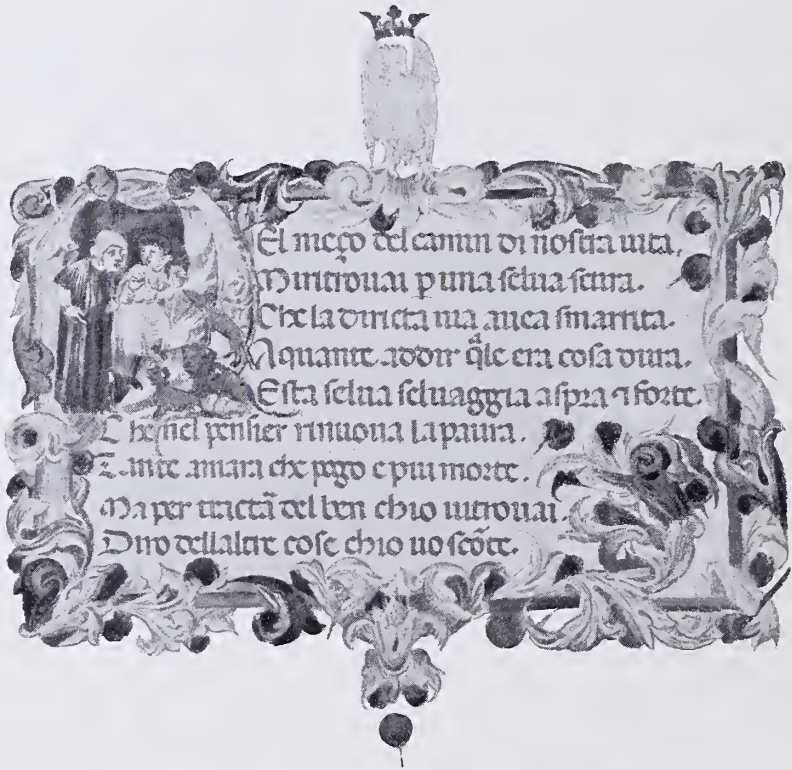 El meço del camin di nostra uita.
Miritrouai p una selua scura.
Che la diricta uia auea smarrita.
A quante addir qle era cosa dura.
Esta selua seluaggia aspra ⁊ forte.
Che nel pensier rinuoua la paura.
Tante amara che pogo e piu morte.
Ma per tractā del ben chio uitrouai.
Diro dellaltre cose chio uo scōte.